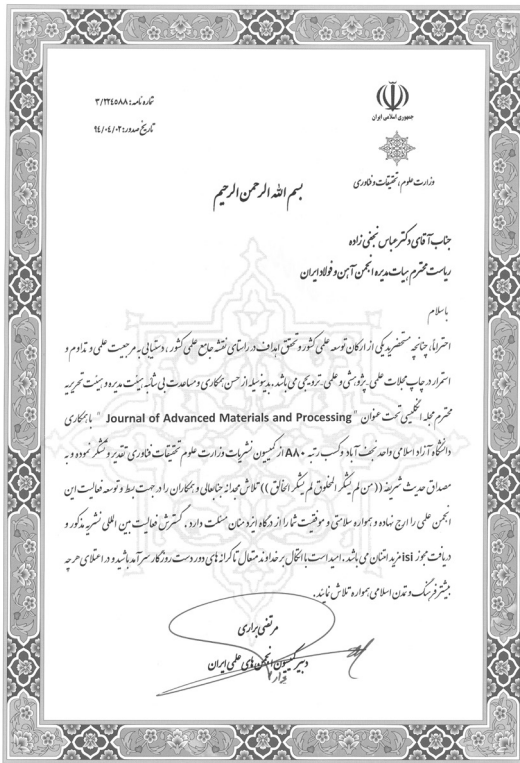 شماره نامه: ۳/۲۲٤٥٨٨
تاریخ صدور: ۹٤/۰٤/۰۲
جمهوری اسلامی ایران
وزارت علوم، تحقیقات و فناوری
بسم الله الرحمن الرحیم
جناب آقای دکتر عباس نجفی زاده
ریاست محترم هیات مدیره انجمن آهن و فولاد ایران
با سلام
احتراما، چنانچه مستحضرید یکی از ارکان توسعه علمی کشور و تحقق اهداف در راستای نقشه جامع علمی کشور، دستیابی به مرجعیت علمی و تداوم و
استمرار در چاپ مجلات علمی-پژوهشی و علمی-ترویجی می باشد. بدینوسیله از حسن همکاری و مساعدت بی شائبه هیئت مدیره و هیئت تحریریه
محترم مجله انگلیسی تحت عنوان " Journal of Advanced Materials and Processing " با همکاری
دانشگاه آزاد اسلامی واحد نجف آباد و کسب رتبه A۸۰ از کمیسیون نشریات وزارت علوم تحقیقات فناوری تقدیر و تشکر نموده و به
مصداق حدیث شریفه ((من لم یشکر المخلوق لم یشکر الخالق)) تلاش مجدانه جنابعالی و همکاران را در جهت بسط و توسعه فعالیت این
انجمن علمی را ارج نهاده و همواره سلامتی و موفقیت شما را از درگاه ایزد منان مسئلت دارد. گسترش فعالیت بین المللی نشریه مذکور و
دریافت مجوز isi مزید امتنان می باشد. امید است با اتکال بر خداوند متعال تا کرانه های دور دست روزگار سرآمد باشید و در اعتلای هر چه
بیشتر فرهنگ و تمدن اسلامی همواره تلاش نمایید.
مرتضی براری
دبیر کمیسیون انجمن های علمی ایران